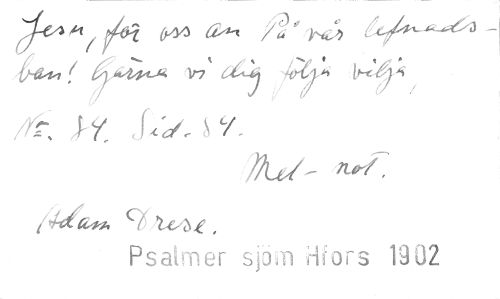 Jesu, för oss an På vår lefnads-
ban! Gärna vi dig följa vilja,
No. 84. Sid. 84.
Mel- not.
Adam Drese.
Psalmer sjöm Hfors 1902